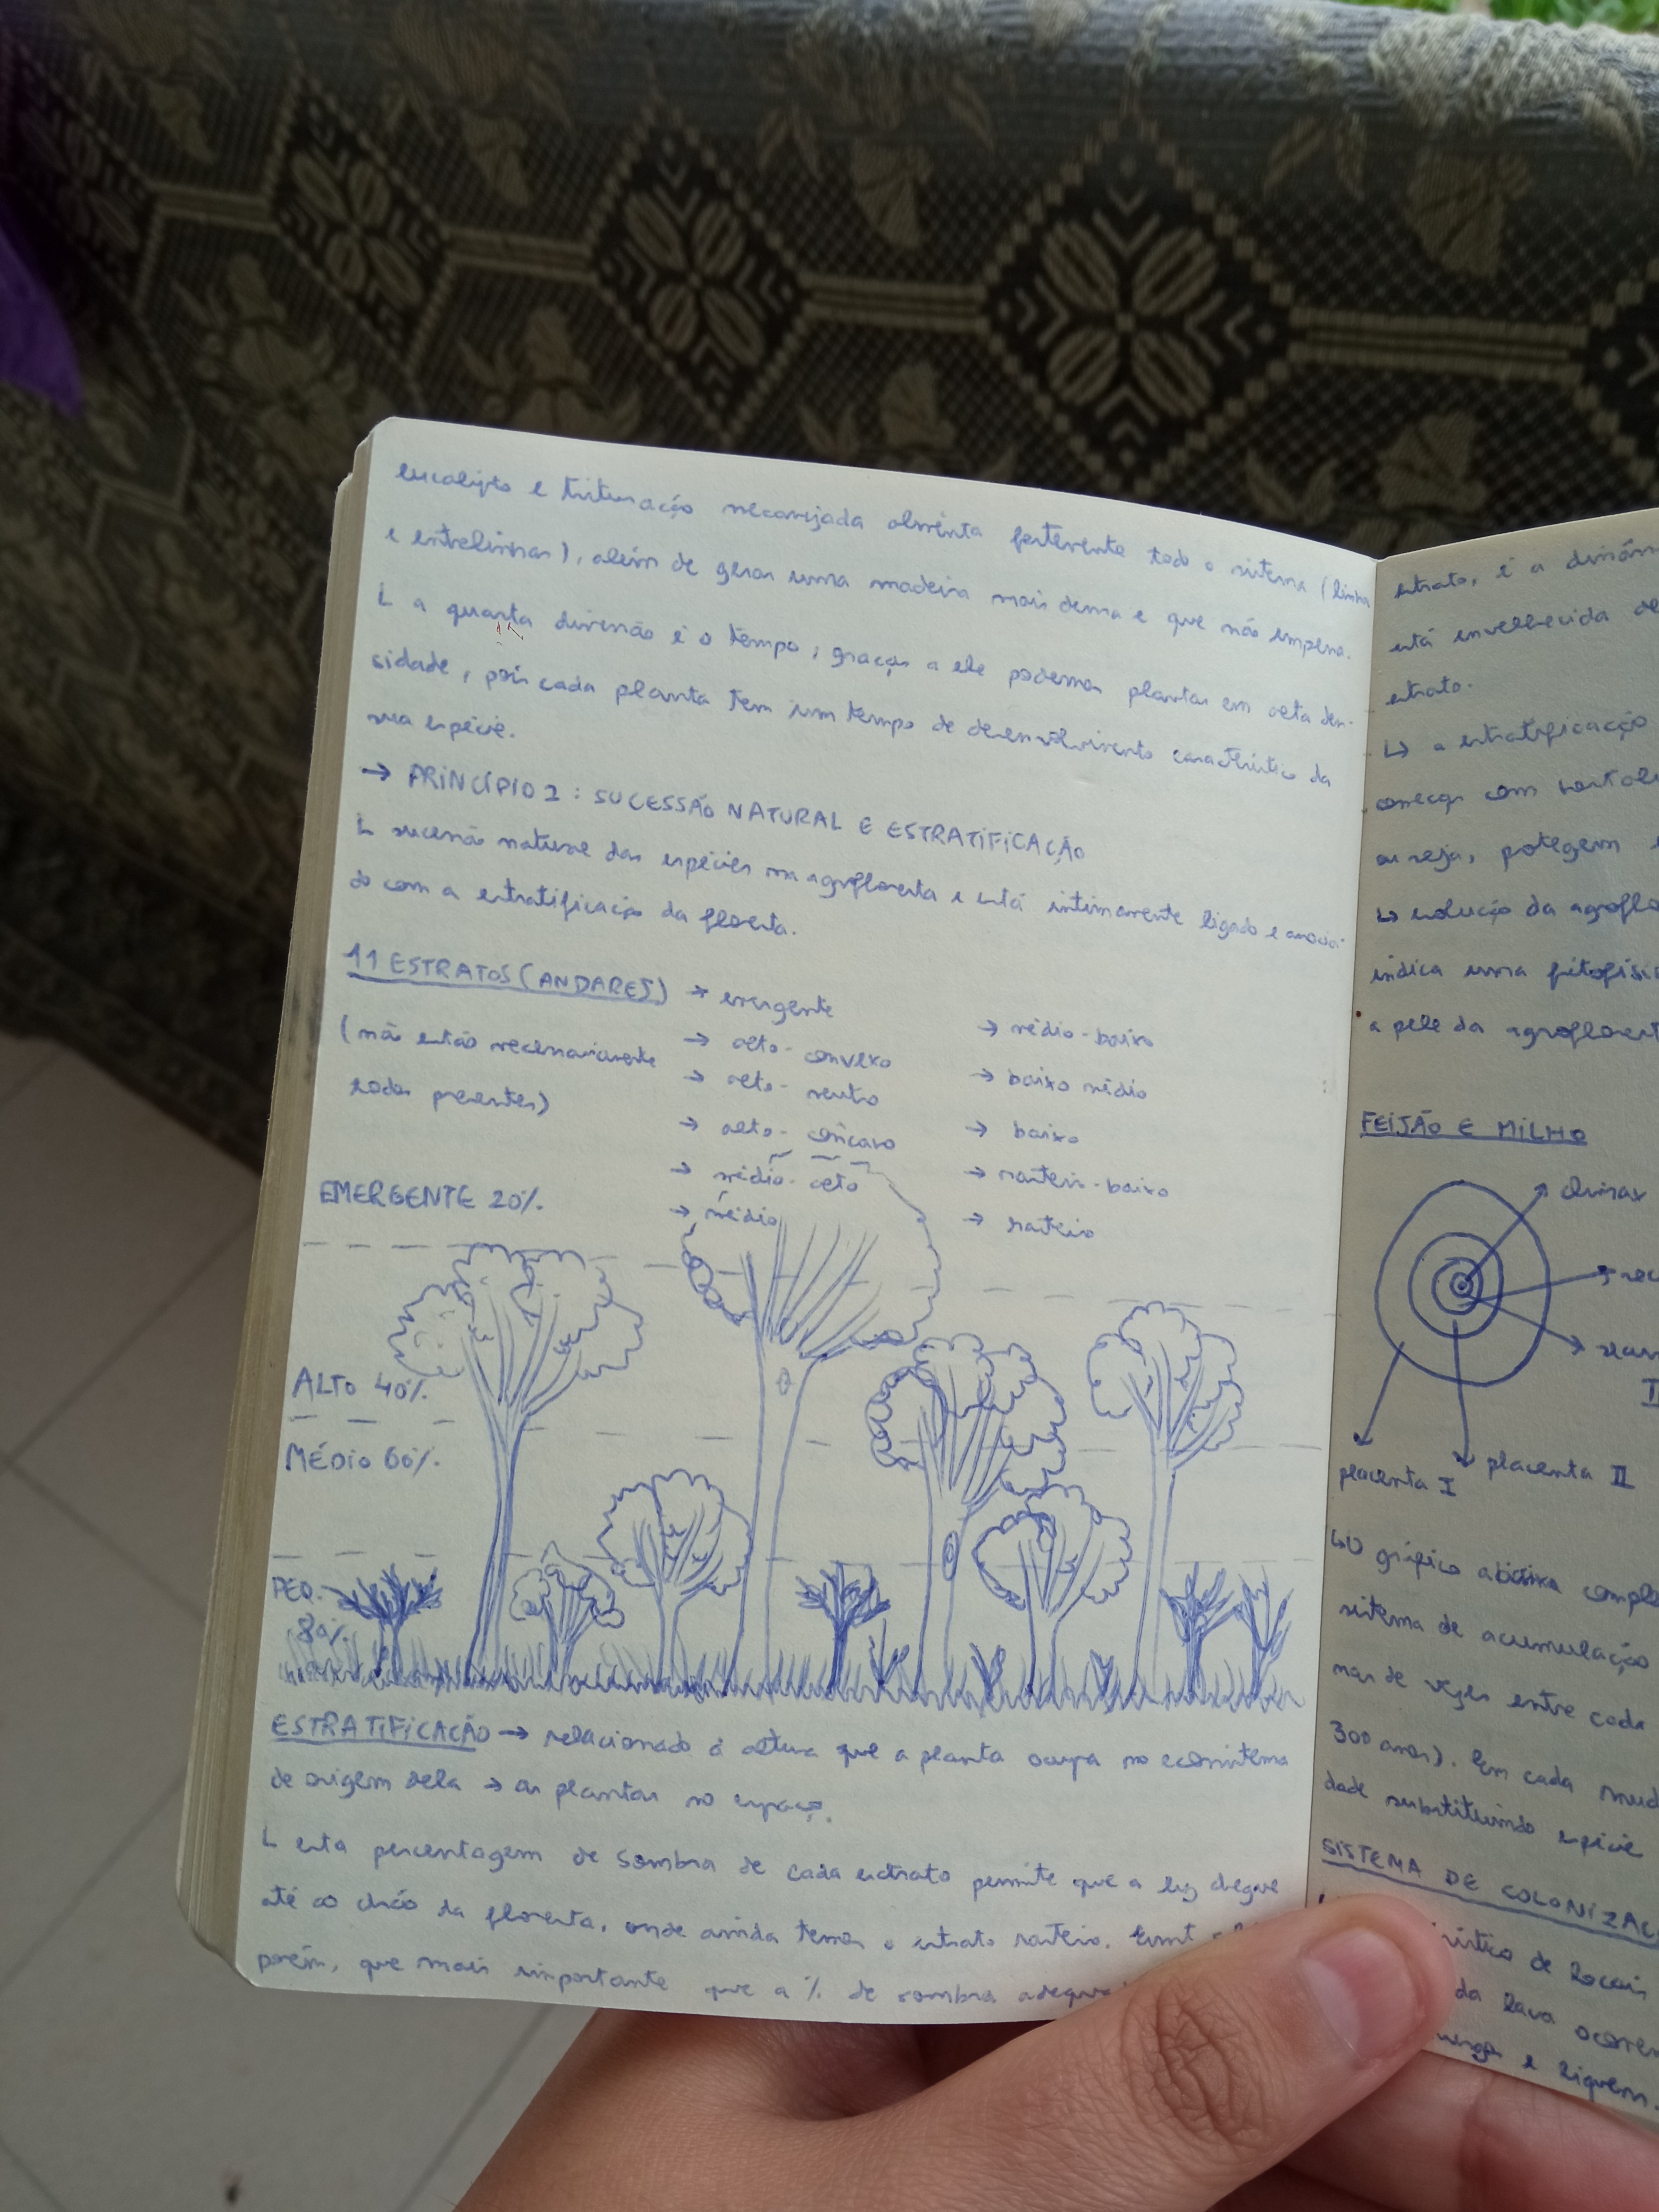 eucalipto e trituração mecanizada alimenta fortemente todo o sistema (linha
e entrelinhas), além de gerar uma madeira mais densa e que não empena.
L a quarta divisão é o tempo, graças a ele podemos plantar em alta den-
sidade, pois cada planta tem um tempo de desenvolvimento característico da
sua espécie.
→ PRINCÍPIO 2: SUCESSÃO NATURAL E ESTRATIFICAÇÃO
L sucessão natural das espécies na agrofloresta e está intimamente ligado e associa-
do com a estratificação da floresta.
11 ESTRATOS (ANDARES) → emergente
(não estão necessariamente
todos presentes)
→ alto-convexo
→ alto-neutro
→ alto-côncavo
→ médio-alto
→ médio
→ médio-baixo
→ baixo médio
→ baixo
→ rasteiro-baixo
→ rasteiro
EMERGENTE 20%.
ALTO 40%.
MÉDIO 60%.
PEQ.
80%.
ESTRATIFICAÇÃO → relacionado à altura que a planta ocupa no ecossistema
de origem dela → as plantas no espaço.
L esta percentagem de sombra de cada estrato permite que a luz chegue
até ao chão da floresta, onde ainda temos o estrato rasteiro.
porém, que mais importante que a % de sombra
estrato, é a
está envelhecida
estrato.
↳ a estratificação
começa com
ou seja, protegem
↳ evolução da
indica uma
a pele da
FEIJÃO E MILHO
climax
placenta I
placenta II
↳ O gráfico abaixo
sistema de acumulação
mas de vezes entre cada
300 anos). Em cada
dade substituindo espécie
SISTEMA DE
de locais
da lava
e líquen.